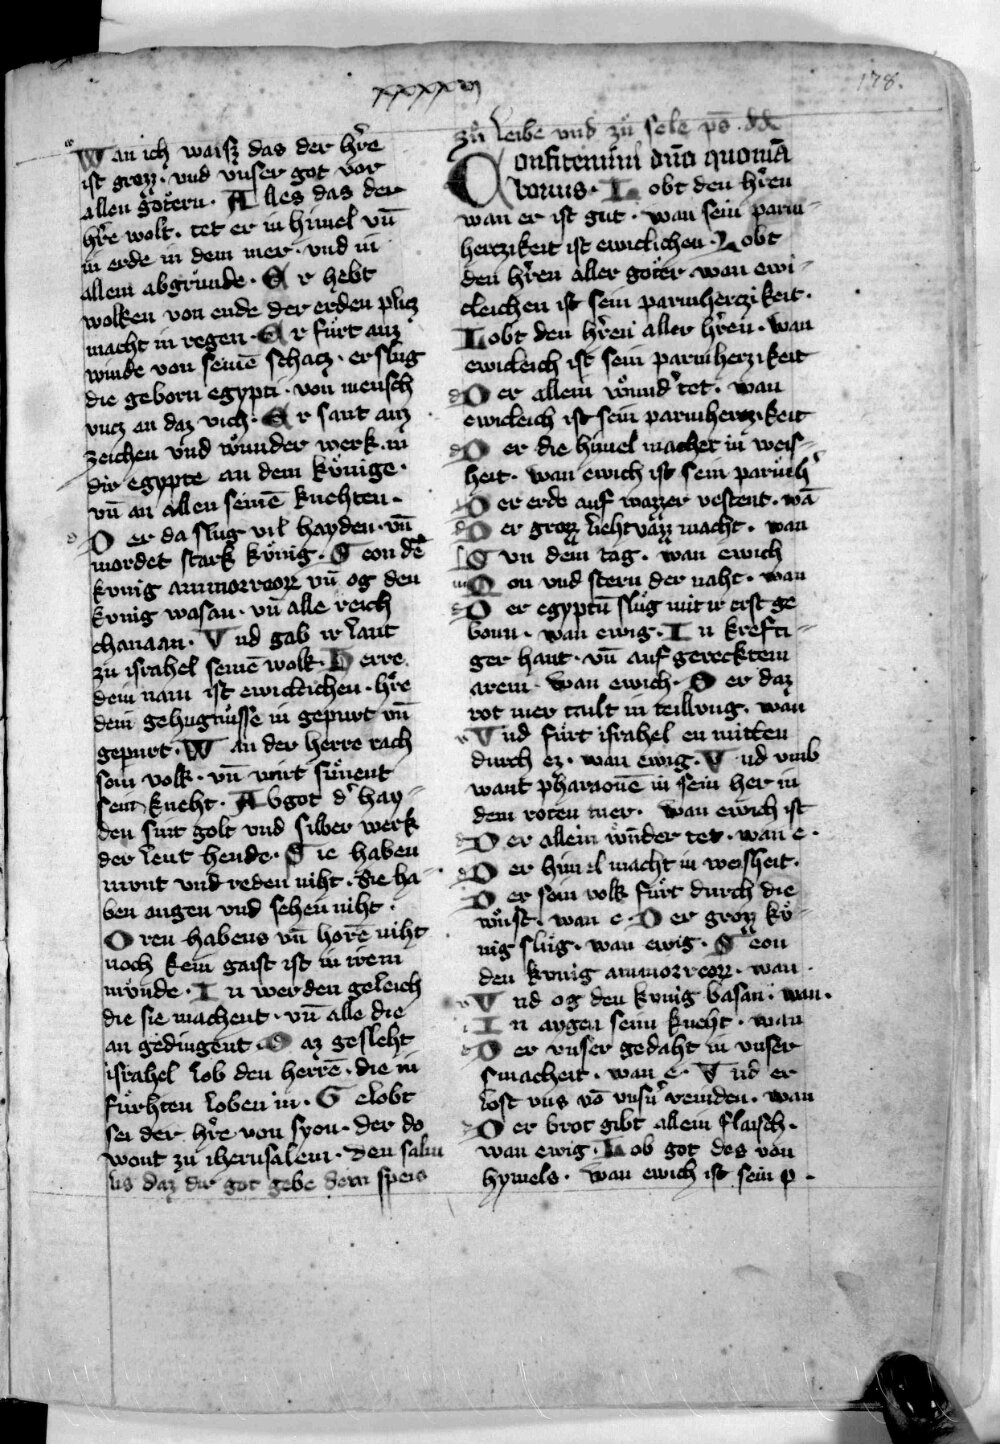 178.
Wan ich waisz das der hr̄e
ist grozz · vnd vnser got vor
allen gotern · Alles das der
hr̄e wolt · tet er in himel vn̄
in erde in dem mer · vnd in
allem abgrunde · Er hebt
wolken von ende der erden plicz
macht in regen · Er fuͤrt auz
winde von seinē schacz · er slug
die geborn egypti · von mensch
vncz an daz vich · Er sant auz
zeichen vnd wunder werk · in
dir egypte an dem kuͤnige ·
vn̄ an allen seinē knehten ·
Der da slug vil hayden · vn̄
mordet stark kuͤnig · Seon dē
kvnig ammorreorz vn̄ og den
kvnig wasan · vn̄ alle reich
chanaan · Vnd gab ir lant
zu israhel seinē wolk · Herre
dein nam ist ewicleichen · hr̄e
dein gehugnuͤsse in gepurt vn̄
gepurt · Wan der herre rach
sein volk · vn̄ wirt suͤnent
sein kneht · Abgot d' hay-
den sint golt vnd silber werk
der leut hende · Sie haben
munt vnd reden niht · Sie ha-
ben augen vnd sehen niht ·
Oren habens vn̄ horē niht
noch kein gaist ist in irem
munde · In werden geleich
die sie machent · vn̄ alle die
an gedingent · Daz gesleht
israhel lob den herrē · die in
fuͤrhten loben in · Gelobt
sei der hr̄e von syon · der do
wont zu iherusalem · Den salm
lis daz dir got gebe dein speis
zuͤ leibe vnd zuͤ sele ps̄ · dd
Confitemini dn̄o quoniā
bonus · Lobt den hr̄en
wan er ist gut · wan sein parm-
herczikeit ist ewiclichen · Lobt
den hr̄en aller goͤter · wan ewi-
cleichen ist sein parmherczikeit ·
Lobt den hr̄en aller hr̄en · wan
ewicleich ist sein parmherzikeit
Der allein wuͤnd' tet · wan
ewicleich ist sein parmherczikeit
Der die himel machet in weis-
heit · wan ewich ist sein parmh'
Der erde auf wazzer vestent · wā
Der grozz lieht vaͤzz macht · wan
Svn dem tag · wan ewich
Mon vnd stern der naht · wan
Der egyptū sluͤg mit ir erst ge
born · wan ewig · In krefti-
ger hant · vn̄ auf gerecktem
arem · wan ewich · Der daz
rot mer tailt in teillvng · wan
Vnd fuͤrt israhel en mitten
durch ez · wan ewig · Vnd vmb
want pharaonē in sein her in
dem roten mer · wan ewich ist
Der allein wuͤnder tet · wan e ·
Der himel macht in weisheit ·
Der sein volk fuͤrt durch die
wuͤst · wan e · Der grozz kuͤ-
nig sluͤg · wan ewig · Seon
den kvnig ammorreorz · wan ·
Vnd og den kvnig basan · wan ·
In aygen seim kneht · wan
Der vnser gedaht in vnser
smacheit · wan e · Vnd er
lost vns vō vnsn̄ veinden · wan
Der brot gibt allem flaisch ·
wan ewig · Lob got des von
hymels · wan ewich ist sein p ·